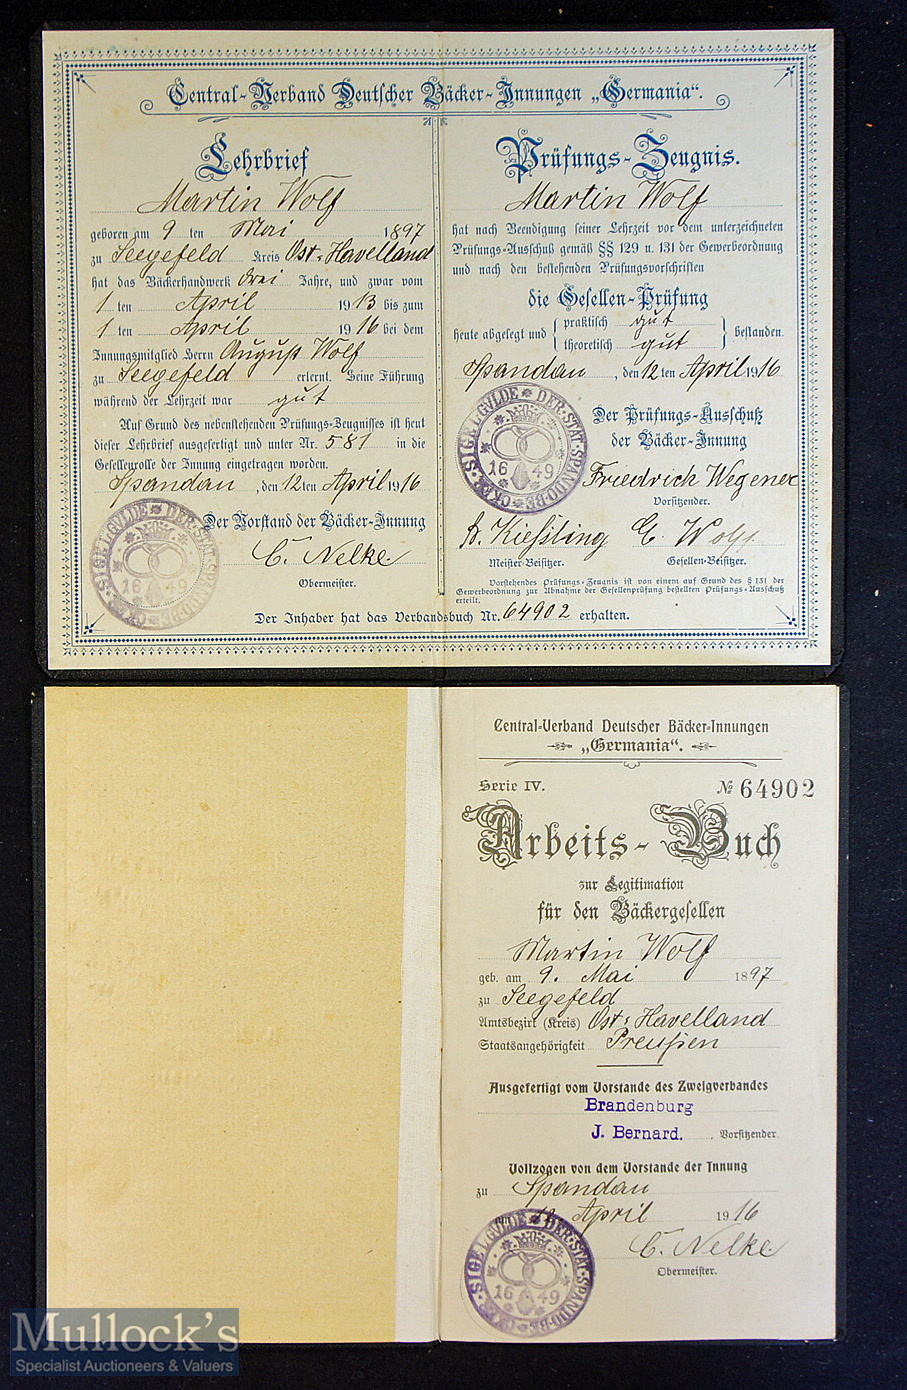 Central-Verband Deutscher Bäcker-Innungen „Germania“.
Lehrbrief
Martin Wolf
geboren am 9 ten Mai 1897
zu Seegefeld Kreis Ost-Havelland
hat das Bäckerhandwerk drei Jahre, und zwar vom
1 ten April 1913 bis zum
1 ten April 1916 bei dem
Innungsmitglied Herrn August Wolf
zu Seegefeld erlernt. Seine Führung
während der Lehrzeit war gut
Auf Grund des nebenstehenden Prüfungs-Zeugnisses ist heut
dieser Lehrbrief ausgefertigt und unter Nr. 581 in die
Gesellenrolle der Innung eingetragen worden.
Spandau, den 12ten April 1916
Der Vorstand der Bäcker-Innung
C. Nelke
Obermeister.
SIGEL·GVLDE DER·STAT·SPANDO·BECKER
16 49
Prüfungs-Zeugnis.
Martin Wolf
hat nach Beendigung seiner Lehrzeit vor dem unterzeichneten
Prüfungs-Ausschuß gemäß §§ 129 u. 131 der Gewerbeordnung
und nach den bestehenden Prüfungsvorschriften
die Gesellen-Prüfung
heute abgelegt und praktisch gut theoretisch gut bestanden.
Spandau, den 12ten April 1916
SIGEL·GVLDE DER·STAT·SPANDO·BECKER
16 49
Der Prüfungs-Ausschuß
der Bäcker-Innung
Friedrich Wegener
Vorsitzender.
Kießling G. Wolf
Meister-Beisitzer. Gesellen-Beisitzer.
Vorstehendes Prüfungs-Zeugnis ist von einem auf Grund des § 131 der
Gewerbeordnung zur Abnahme der Gesellenprüfung bestellten Prüfungs-Ausschuß
erteilt.
Der Inhaber hat das Verbandsbuch Nr. 64902 erhalten.
Central-Verband Deutscher Bäcker-Innungen
„Germania“.
Serie IV. № 64902
Arbeits-Buch
zur Legitimation
für den Bäckergesellen
Martin Wolf
geb. am 9. Mai 1897
zu Seegefeld
Amtsbezirk (Kreis) Ost-Havelland
Staatsangehörigkeit Preußen
Ausgefertigt vom Vorstande des Zweigverbandes
Brandenburg
J. Bernard. , Vorsitzender
Vollzogen von dem Vorstande der Innung
zu Spandau
am 12. April 1916
C. Nelke
Obermeister.
SIGEL·GVLDE DER·STAT·SPANDO·BECKER
16 49
Mullock's
Specialist Auctioneers & Valuers